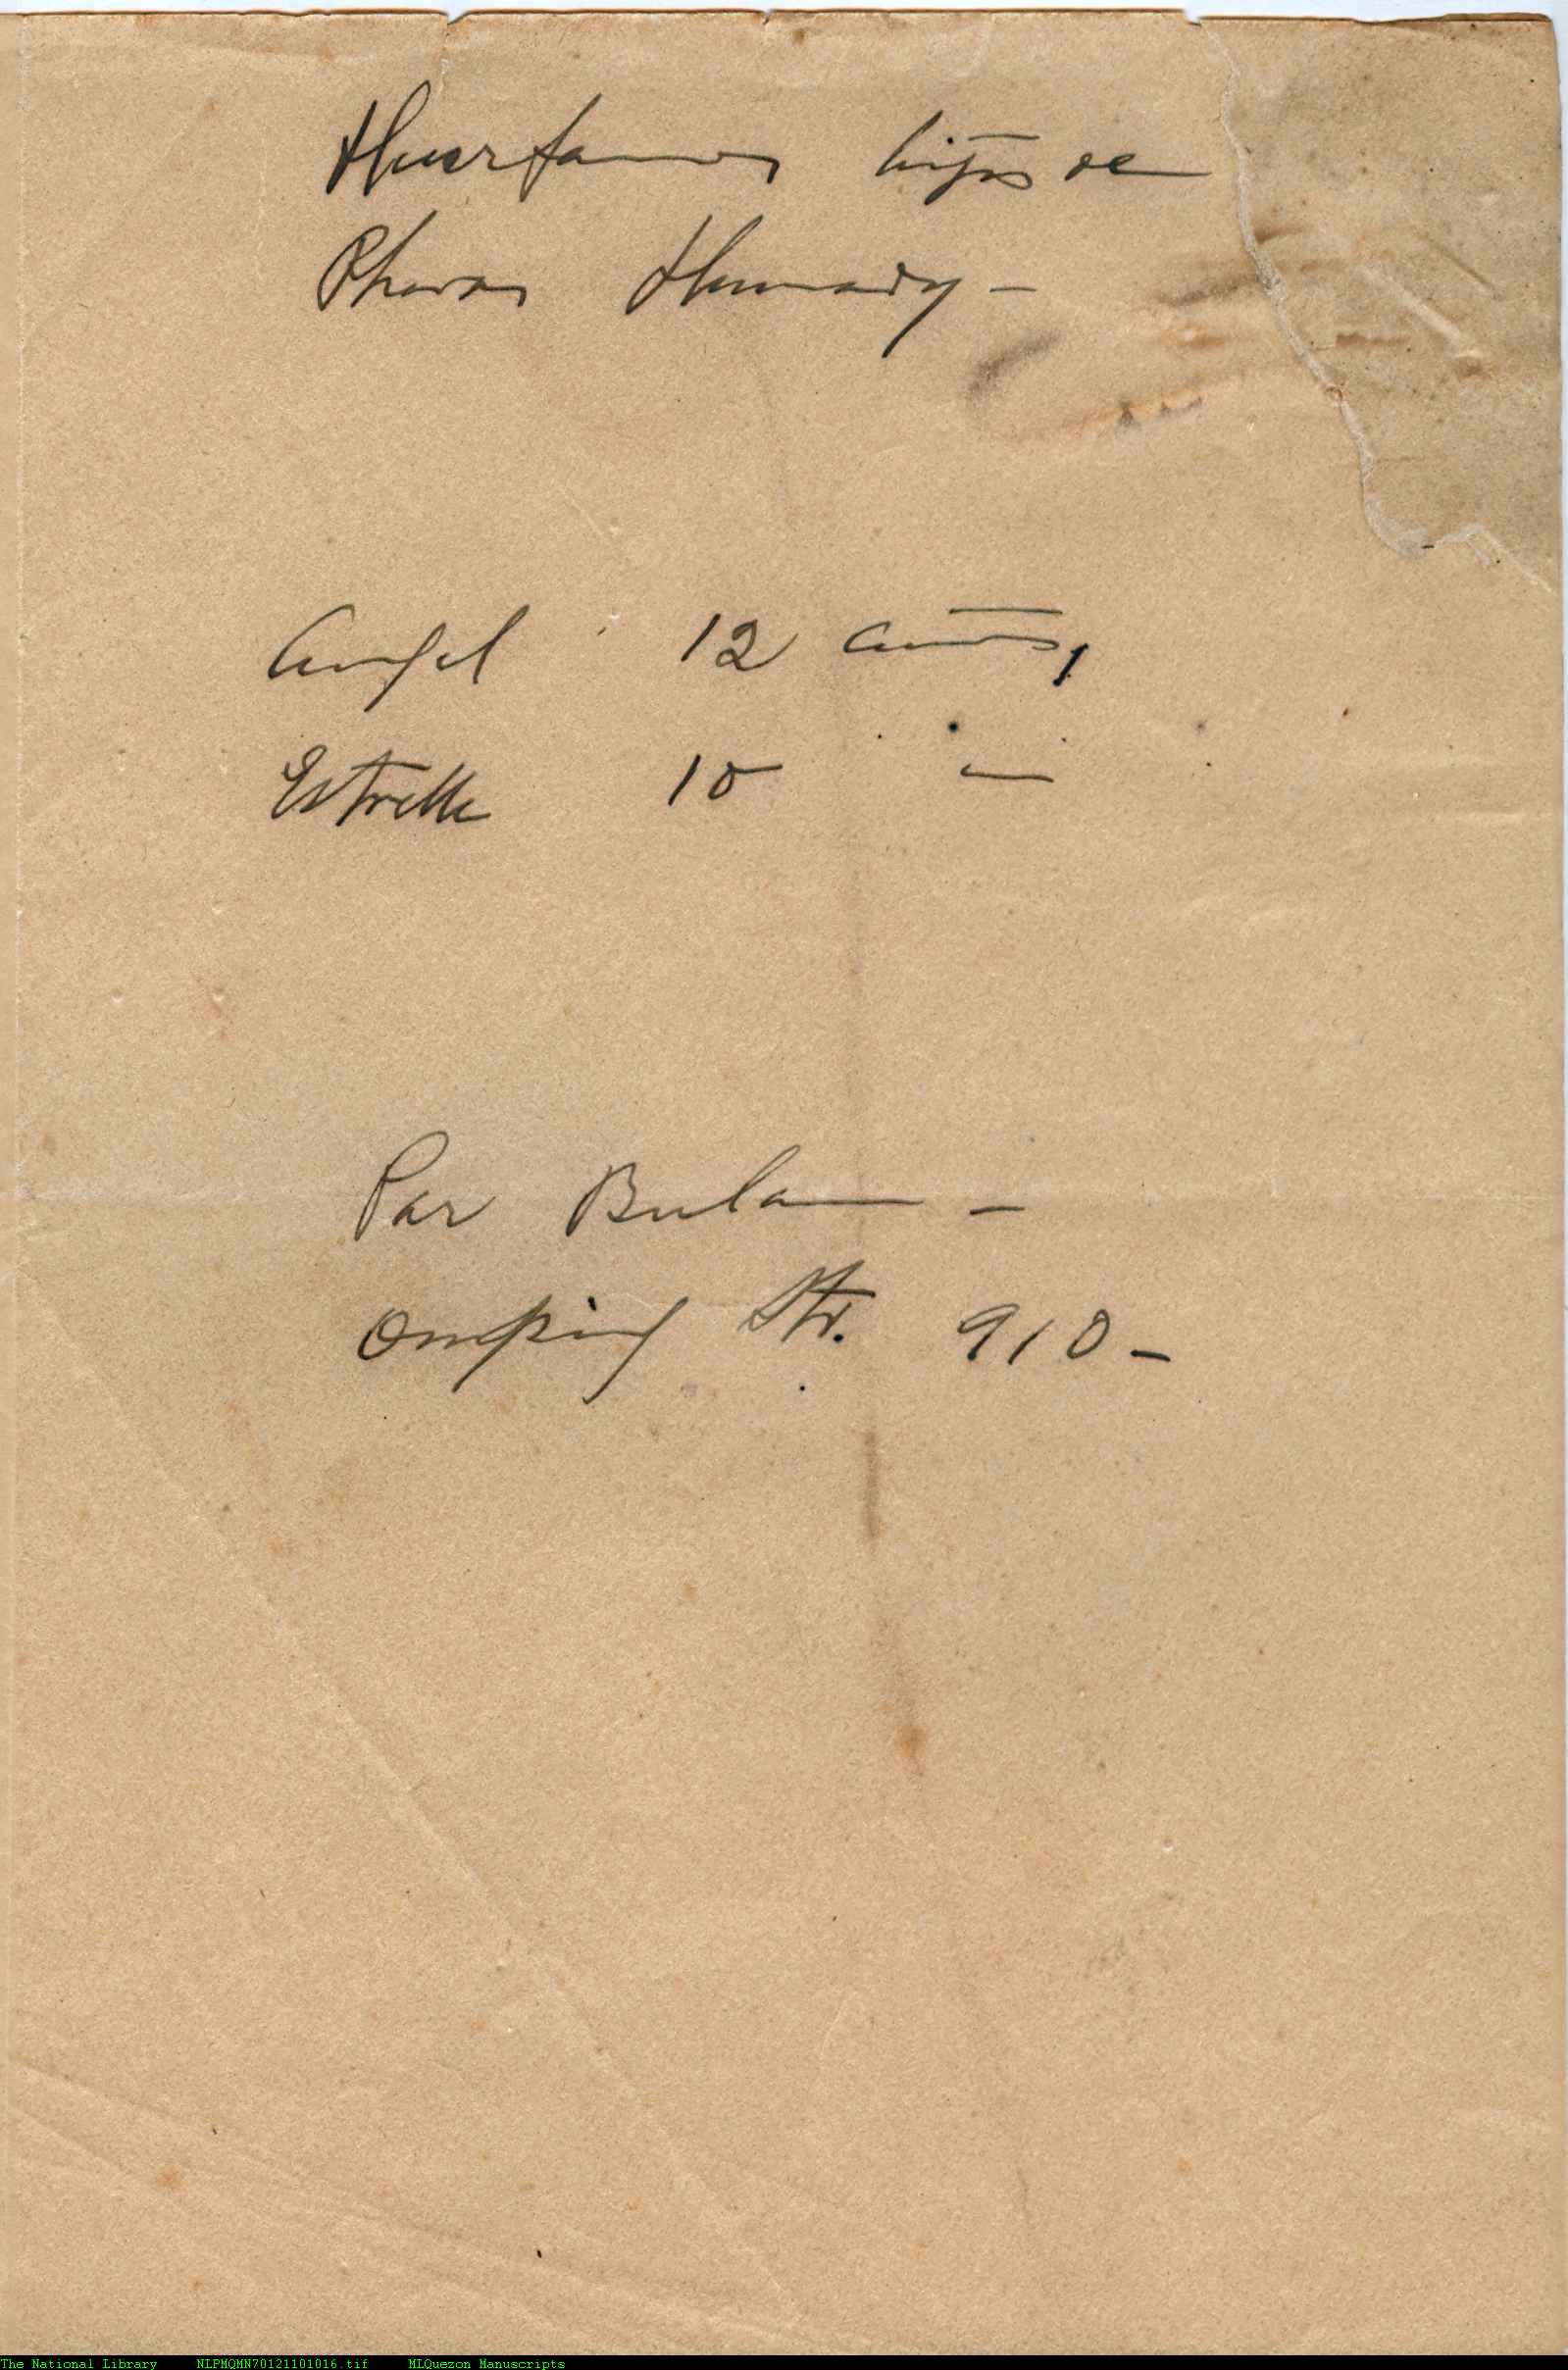 Huerfanos hijos de
Hemady -
Angel 12 años,
Estrella 10 "
Paz Bulan -
Ongpin Str. 910 -
The National Library NLPMQMN70121101016.tif MLQuezon Manuscripts